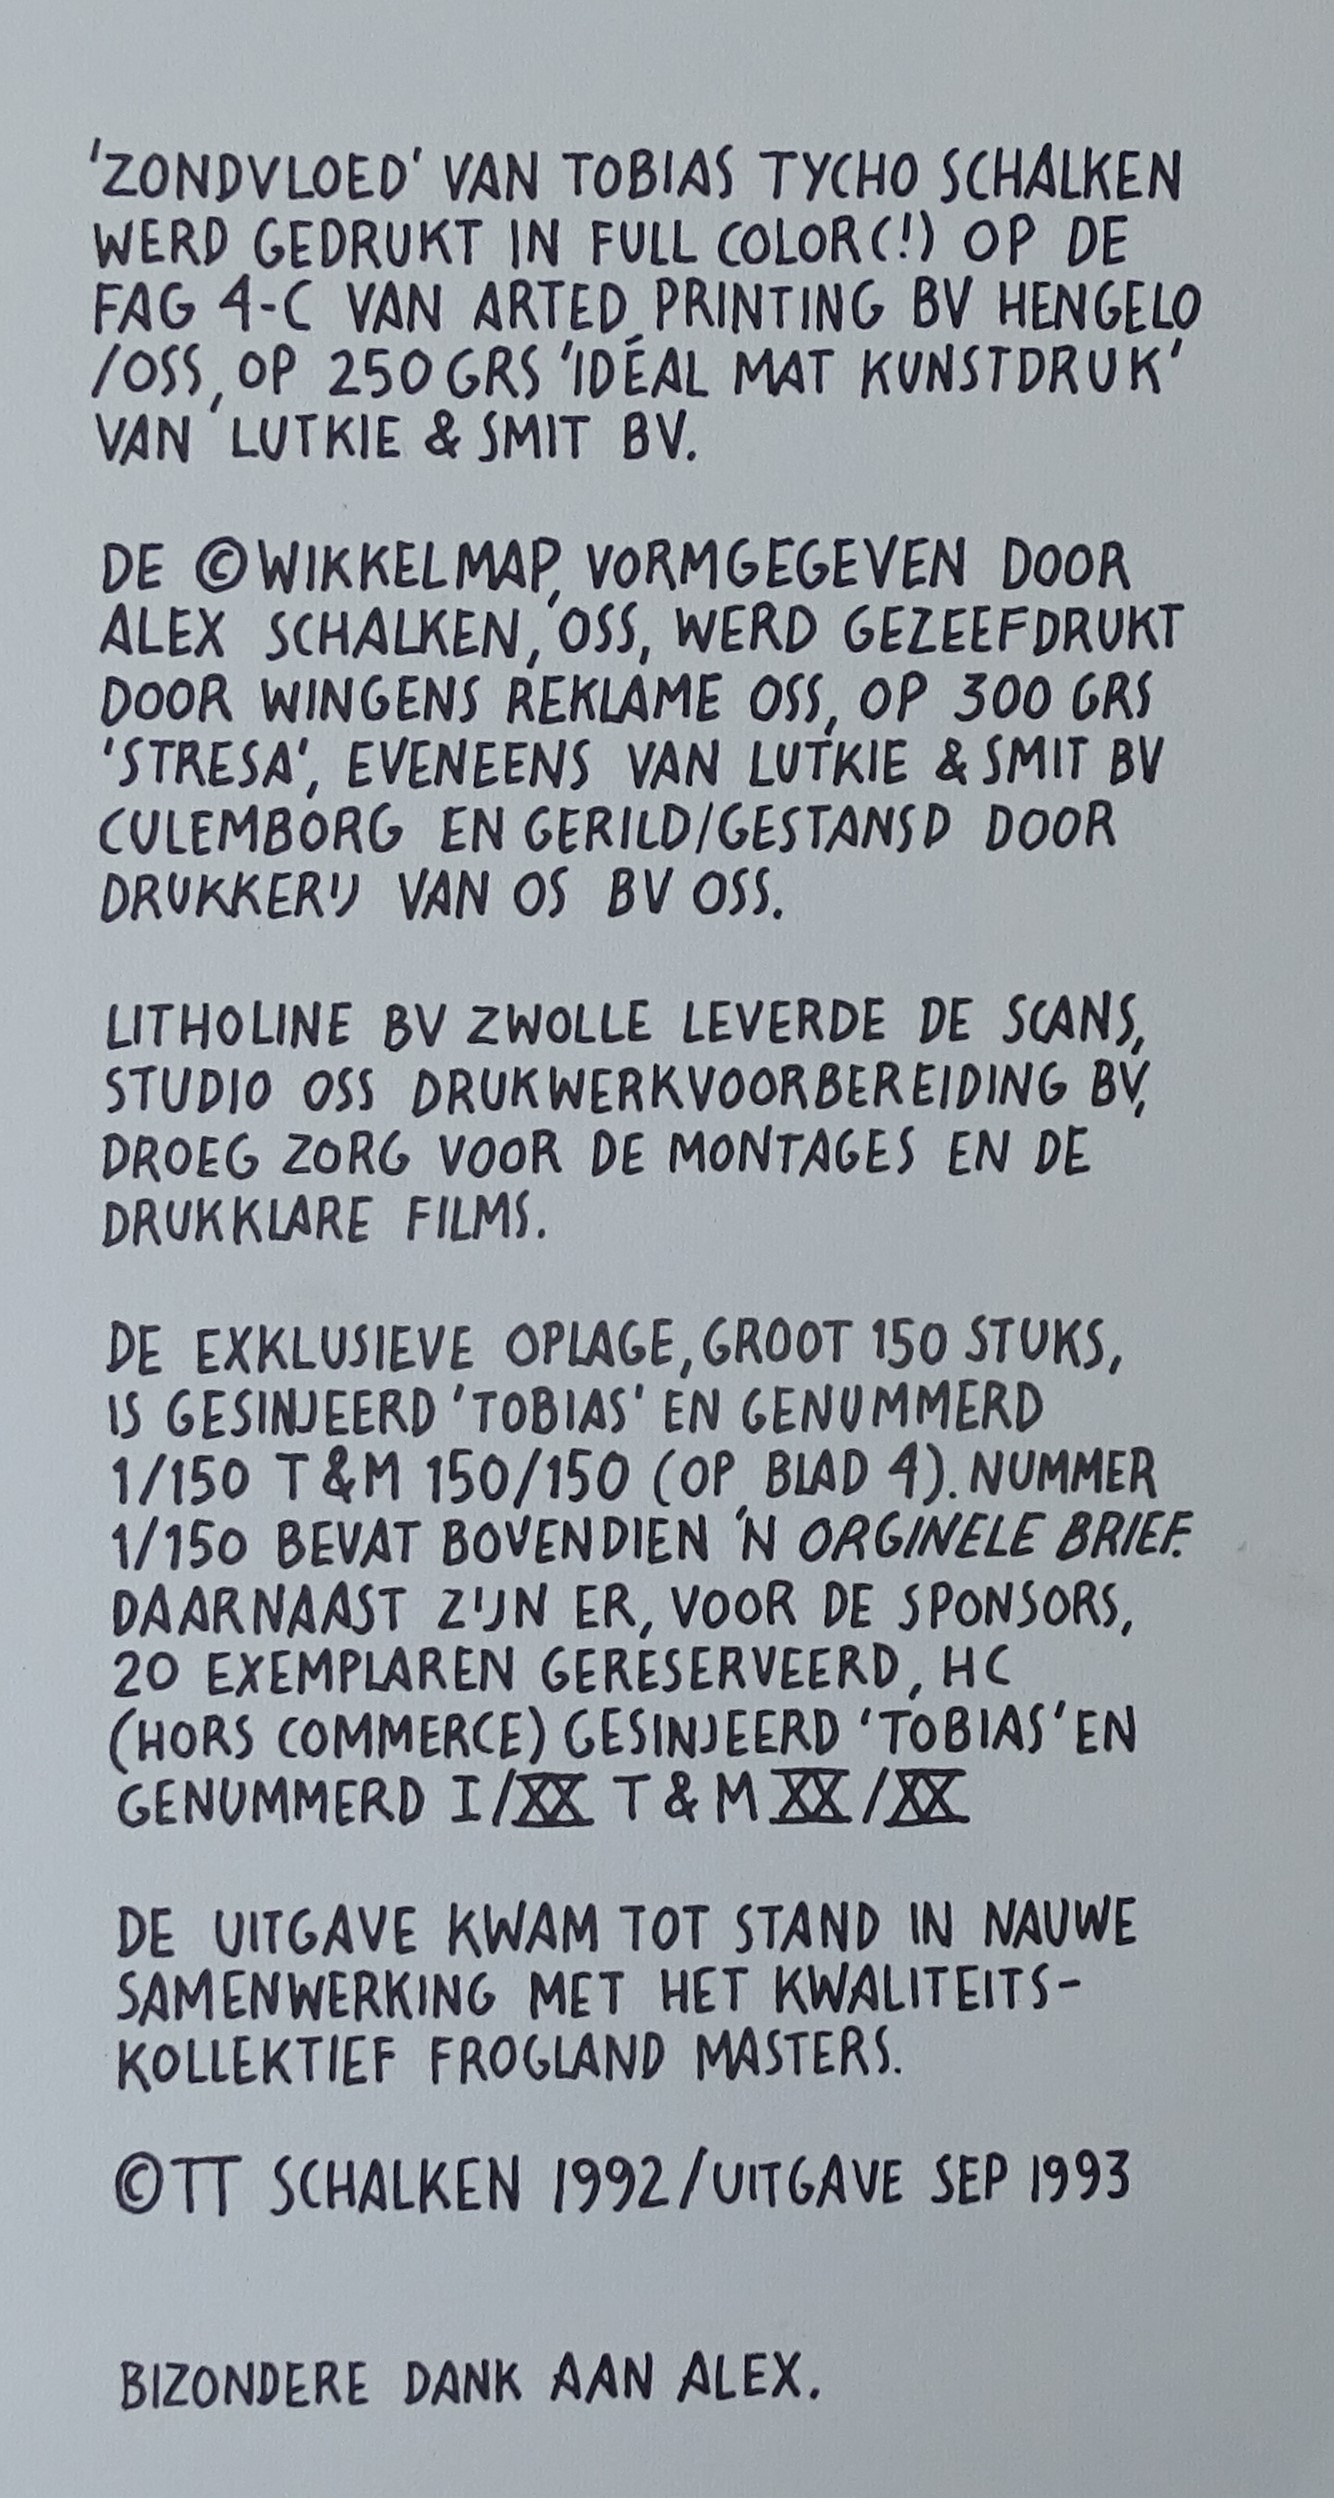 'ZONDVLOED' VAN TOBIAS TYCHO SCHALKEN
WERD GEDRUKT IN FULL COLOR(!) OP DE
FAG 4-C VAN ARTED PRINTING BV HENGELO
/OSS, OP 250 GRS 'IDÉAL MAT KUNSTDRUK'
VAN LUTKIE & SMIT BV.
DE ©WIKKELMAP, VORMGEGEVEN DOOR
ALEX SCHALKEN, OSS, WERD GEZEEFDRUKT
DOOR WINGENS REKLAME OSS, OP 300 GRS
'STRESA', EVENEENS VAN LUTKIE & SMIT BV
CULEMBORG EN GERILD/GESTANSD DOOR
DRUKKERIJ VAN OS BV OSS.
LITHOLINE BV ZWOLLE LEVERDE DE SCANS,
STUDIO OSS DRUKWERKVOORBEREIDING BV,
DROEG ZORG VOOR DE MONTAGES EN DE
DRUKKLARE FILMS.
DE EXKLUSIEVE OPLAGE, GROOT 150 STUKS,
IS GESINJEERD 'TOBIAS' EN GENUMMERD
1/150 T&M 150/150 (OP BLAD 4). NUMMER
1/150 BEVAT BOVENDIEN 'N ORGINELE BRIEF.
DAARNAAST ZIJN ER, VOOR DE SPONSORS,
20 EXEMPLAREN GERESERVEERD, HC
(HORS COMMERCE) GESINJEERD 'TOBIAS' EN
GENUMMERD I/XX T&M XX/XX
DE UITGAVE KWAM TOT STAND IN NAUWE
SAMENWERKING MET HET KWALITEITS-
KOLLEKTIEF FROGLAND MASTERS.
©TT SCHALKEN 1992/UITGAVE SEP 1993
BIZONDERE DANK AAN ALEX.